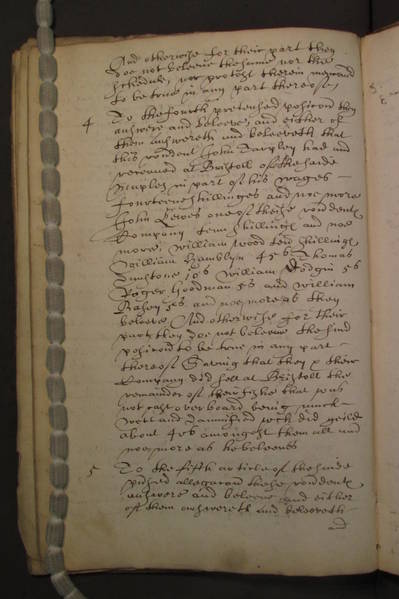 And otherwise for their part they
doe not beleeve the same nor the
schedule, nor protest therein menconed
to be true in any part thereof,
4 To the fourth pretended posicon they
answere and beleeve and either of
them answereth and beleeveth that
this rendent John Tarpley had and
received at Bristoll of the saide
Naples in part of his wages
fourteene shillinges and noe more
John Reeves one of theise rendents
Company tenn shillinges and noe
more, William Wood ten shillings
William Hamblyn 45s Thomas
10s William Dodgin 5s
Roger Goodman 5s and William
5s and noe more as they
beleeve And otherwise for their
part they doe not beleeve the said
posicon to be true in any part
thereof Saving that they & their
Company did sell at Bristoll the
remainder of their fishe that was
not cast over board being much
wett and damnified wch did yeild
about 40s amongest them all and
noe more as he beleeves
5 To the fifth article of the saide
allegacon theise rendents
answere and beleeve and either
of them answereth and beleeveth
and